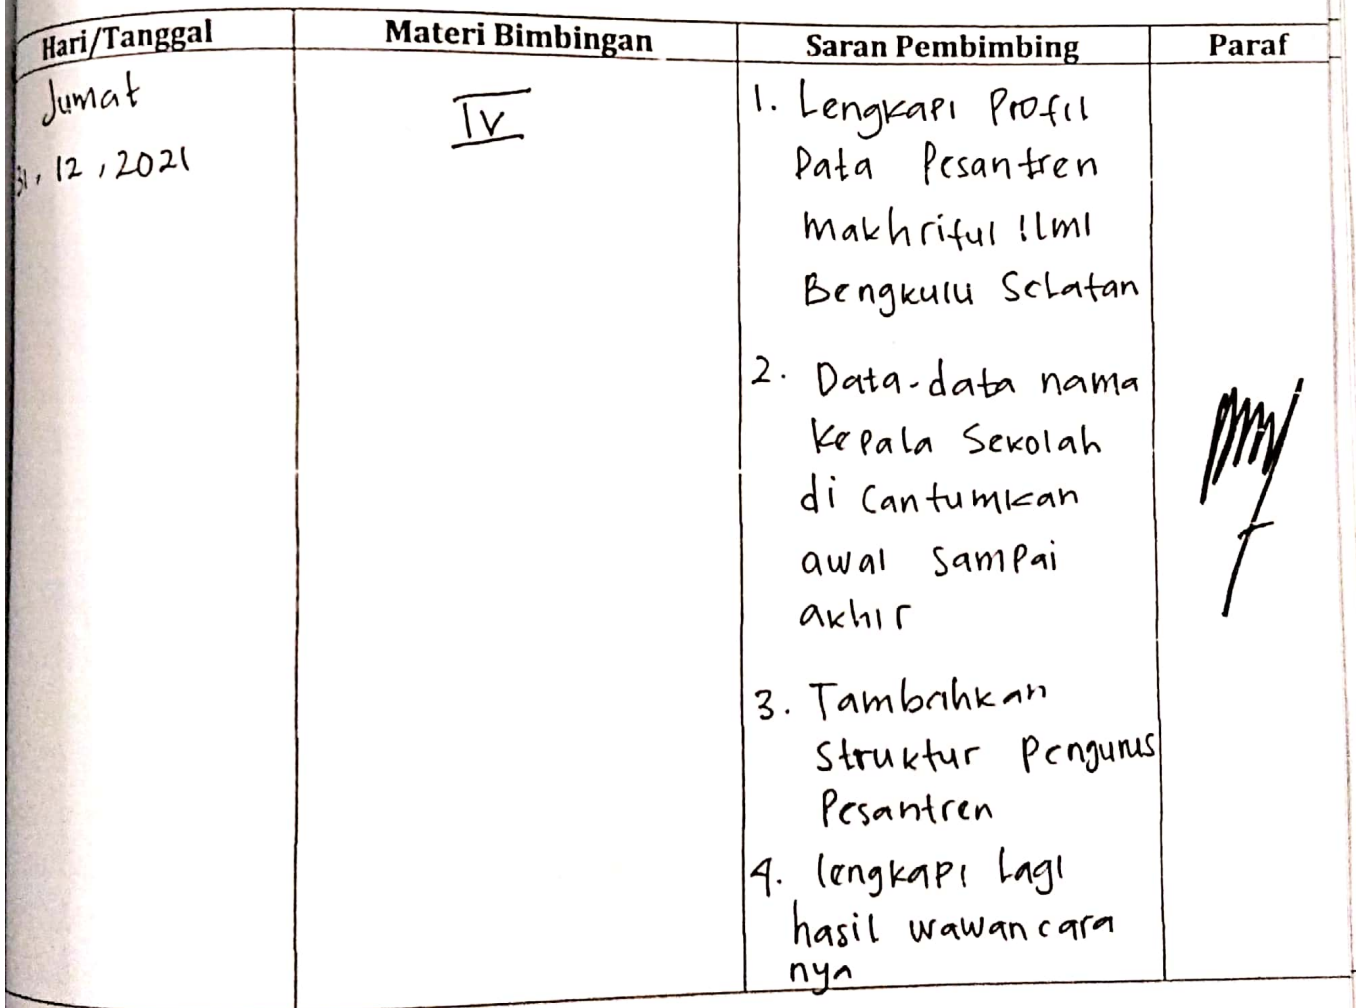 Hari/Tanggal Materi Bimbingan Saran Pembimbing Paraf
Jumat
31, 12, 2021
IV
1. Lengkapi Profil
Data Pesantren
Makhriful Ilmi
Bengkulu Selatan
2. Data-data nama
Kepala Sekolah
di Cantumkan
awal Sampai
akhir
3. Tambahkan
Struktur Pengurus
Pesantren
4. lengkapi Lagi
hasil wawancara
nya